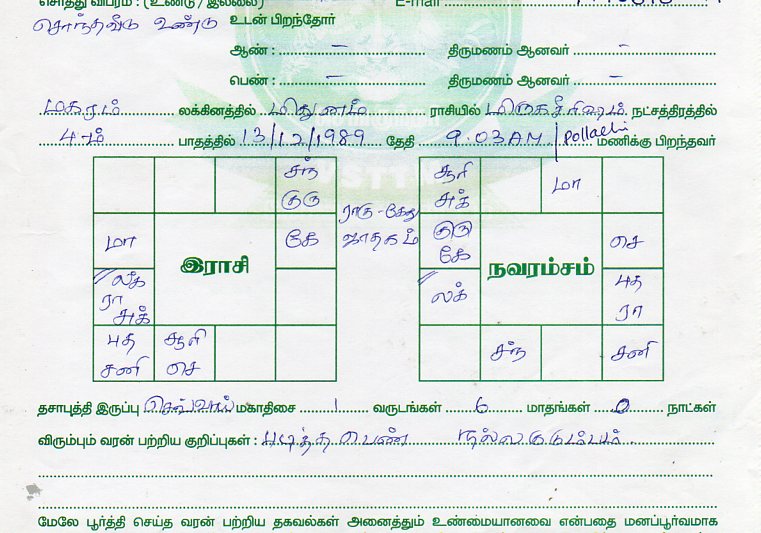 சொத்து விபரம் : (உண்டு / இல்லை) E-mail
சொந்தவீடு உண்டு உடன் பிறந்தோர்
ஆண் : – திருமணம் ஆனவர் –
பெண் : – திருமணம் ஆனவர் –
மகரம் லக்கினத்தில் மிதுனம் ராசியில் மிருகசீரிஷம் நட்சத்திரத்தில்
4-ம் பாதத்தில் 13/12/1989 தேதி 9.03AM / Pollachi மணிக்கு பிறந்தவர்
சந் சூரி மா
குரு ராகு-கேது சுக்
மா கே ஜாதகம் குரு செ
இராசி கே நவரம்சம்
லக் லக் புத
ரா ரா
சுக்
புத சூரி சந் சனி
சனி செ
தசாபுத்தி இருப்பு செவ்வாய் மகாதிசை 1 வருடங்கள் 6 மாதங்கள் 0 நாட்கள்
விரும்பும் வரன் பற்றிய குறிப்புகள் : படித்த பெண் நல்ல குடும்பம்
மேலே பூர்த்தி செய்த வரன் பற்றிய தகவல்கள் அனைத்தும் உண்மையானவை என்பதை மனப்பூர்வமாக